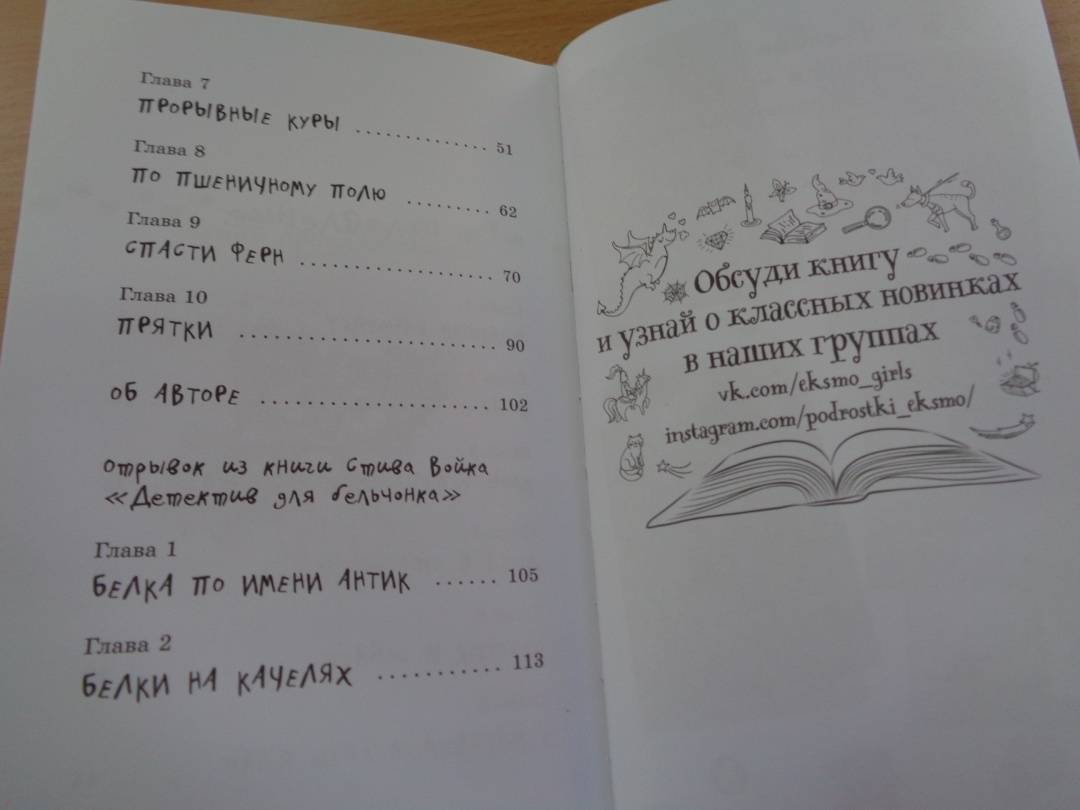 Глава 7
ПРОРЫВНЫЕ КУРЫ .................. 51
Глава 8
ПО ПШЕНИЧНОМУ ПОЛЮ ........... 62
Глава 9
СПАСТИ ФЕРН ........................ 70
Глава 10
ПРЯТКИ ............................ 90
ОБ АВТОРЕ ......................... 102
Отрывок из книги Стива Войка
«Детектив для бельчонка»
Глава 1
БЕЛКА ПО ИМЕНИ АНТИК ...... 105
Глава 2
БЕЛКИ НА КАЧЕЛЯХ ............ 113
Обсуди книгу
и узнай о классных новинках
в наших группах
vk.com/eksmo_girls
instagram.com/podrostki_eksmo/